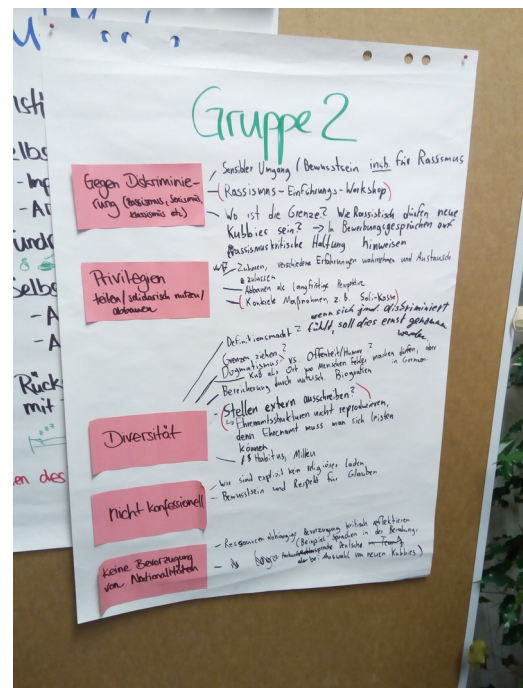 Gruppe 2
Gegen Diskriminie-
rung (Rassismus, Sexismus,
Klassismus etc.)
- Sensibler Umgang / Bewusstsein insb. für Rassismus
- (Rassismus-Einführungs-Workshop)
- Wo ist die Grenze? Wie Rassistisch dürfen neue
Kubbies sein? → In Bewerbungsgesprächen auf
Rassismuskritische Haltung hinweisen
Privilegien
teilen/solidarisch nutzen/
abbauen
Zuhören, verschiedene Erfahrungen wahrnehmen und Austausch
zulassen
- Abbauen als langfristige
- (Konkrete Maßnahmen, z.B. Soli-Kasse)
Diversität
Definitionsmacht? wenn sich jmd. diskriminiert
fühlt, soll dies ernst genommen
werden
Grenzen ziehen?
Dogmatismus vs. Offenheit/Humor?
als Ort wo Menschen Fehler machen dürfen, aber
in
Bereicherung durch Biografien
- (Stellen extern ausschreiben?)
→ Ehrenamtsstrukturen nicht reproduzieren,
denn Ehrenamt muss man sich leisten
können
Habitus, Milieu
nicht konfessionell
- Wir sind explizit kein religiöser Laden
- Bewusstsein und Respekt für Glauben
Keine Bevorzugung
von Nationalitäten
- Ressourcen abhängige Bevorzugung kritisch reflektieren
(Beispiel: Sprachen in der Beratung,
Deutsche im Team
bei Auswahl von neuen Kubbies)
Rück
mit
en des